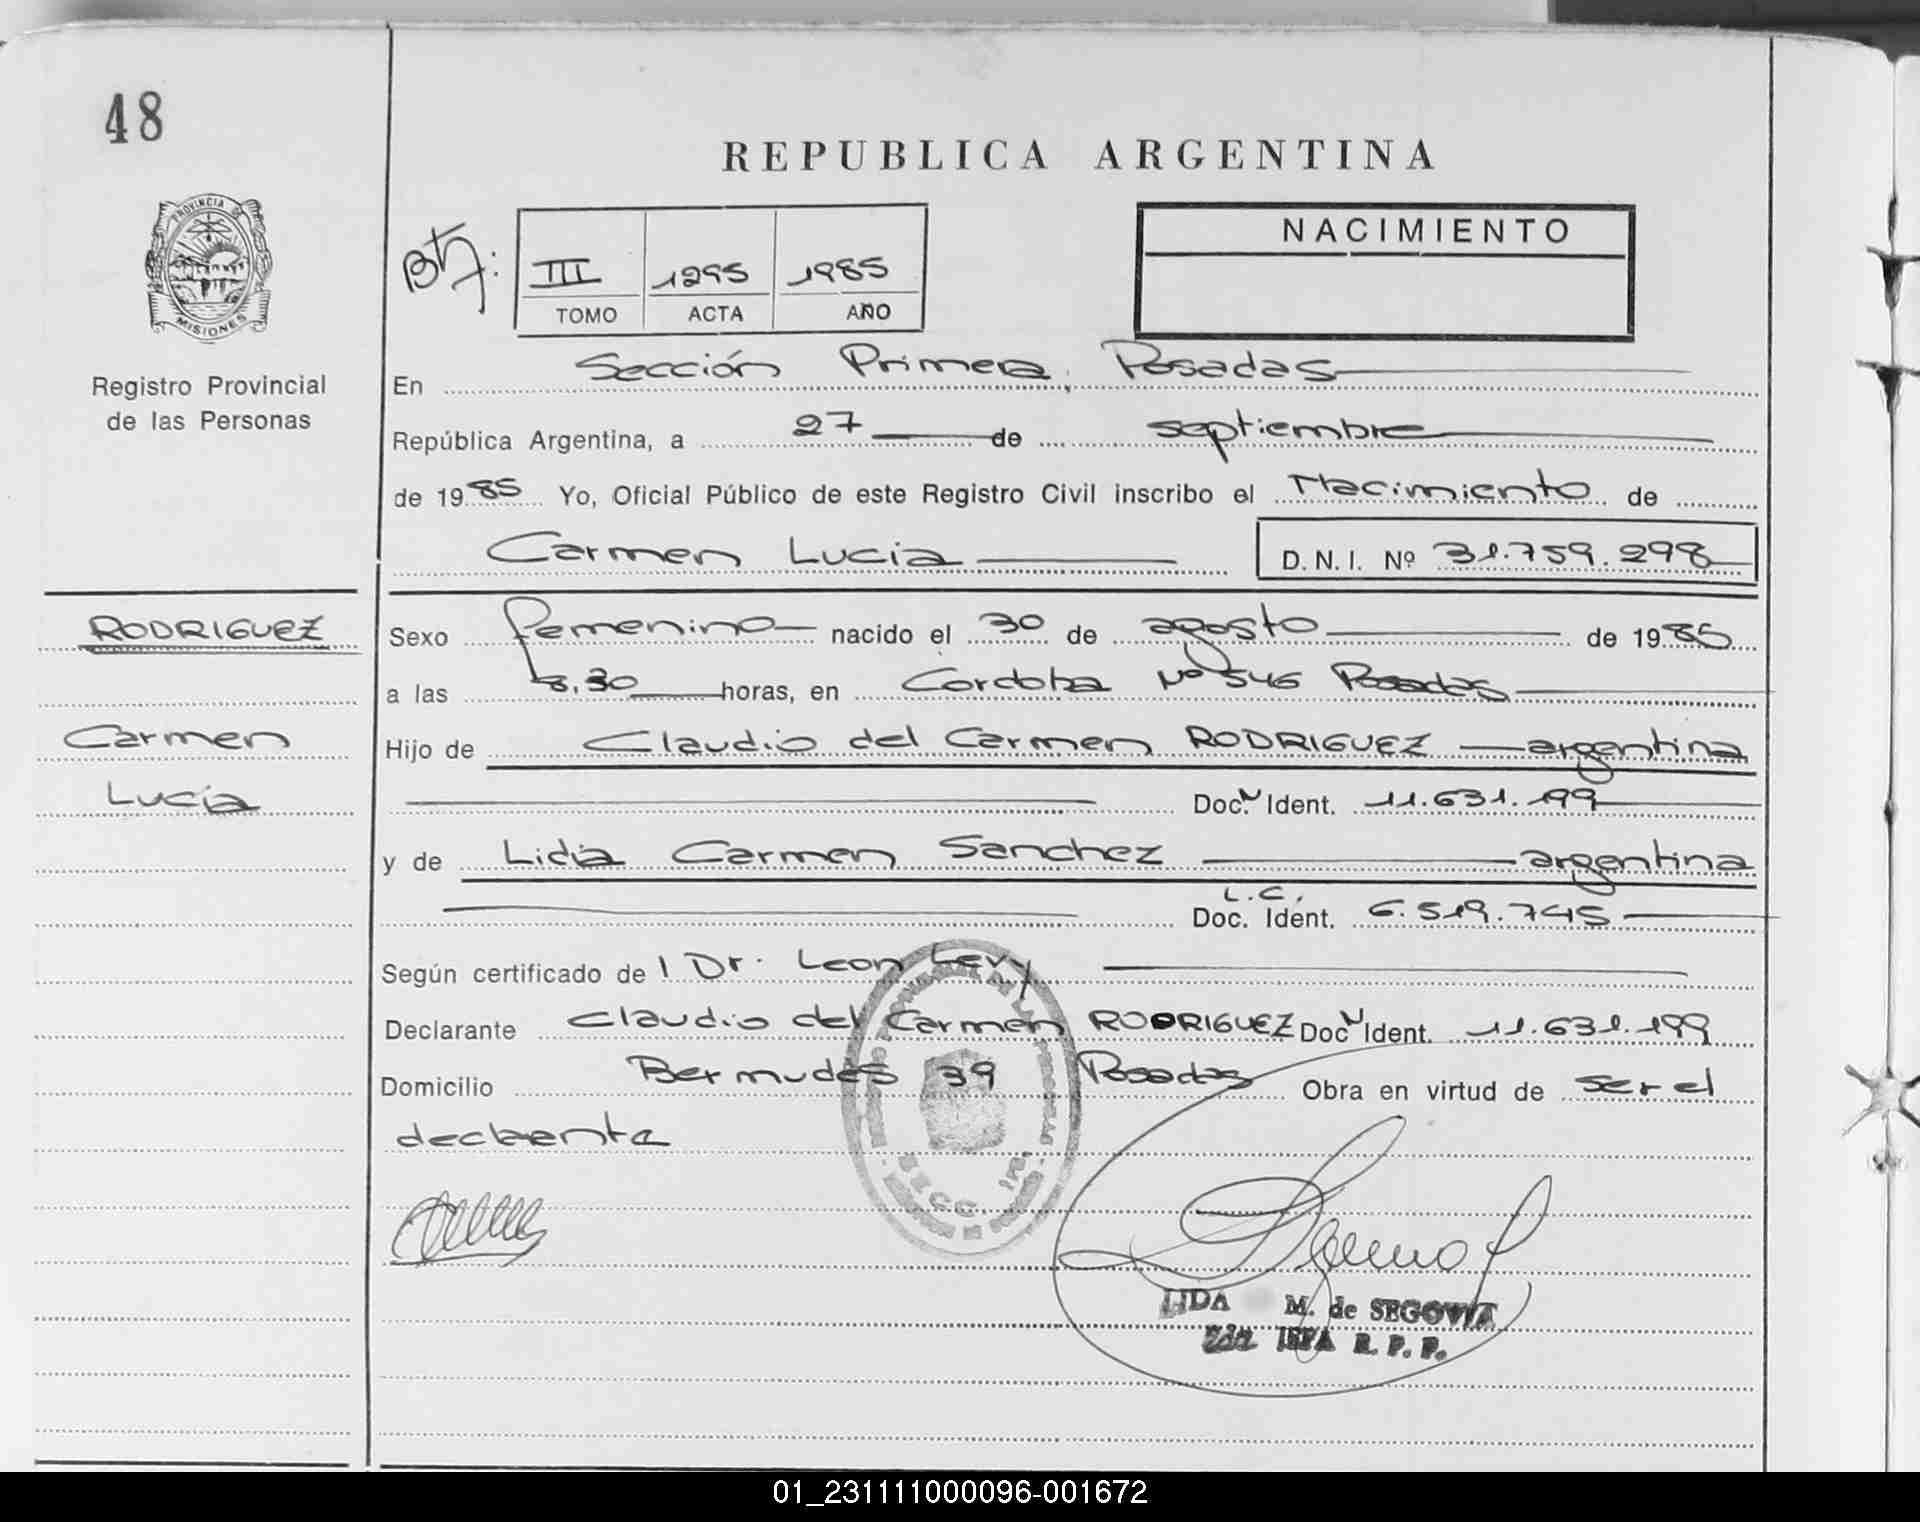 48
REPUBLICA ARGENTINA
PROVINCIA DE
MISIONES
Registro Provincial
de las Personas
III 1295 1985
TOMO ACTA AÑO
NACIMIENTO
En Sección Primera, Posadas
República Argentina, a 27 de septiembre
de 1985 Yo, Oficial Público de este Registro Civil inscribo el Nacimiento de
Carmen Lucia D.N.I. Nº 31.759.298
RODRIGUEZ
Carmen
Lucia
Sexo femenino nacido el 30 de agosto de 1985
a las 8,30 horas, en Cordoba Nº 546 Posadas
Hijo de Claudio del Carmen RODRIGUEZ argentina
Doc. N Ident. 11.631.199
y de Lidia Carmen Sanchez argentina
L.C.
Doc. Ident. 6.519.745
Según certificado de Dr. Leon Levy
Declarante Claudio del Carmen RODRIGUEZ Doc N Ident. 11.631.199
Domicilio Bermudes 39 Posadas Obra en virtud de ser el
declarante
LIDA M. de SEGOVIA
2da JEFA R. P. P.
01_231111000096-001672